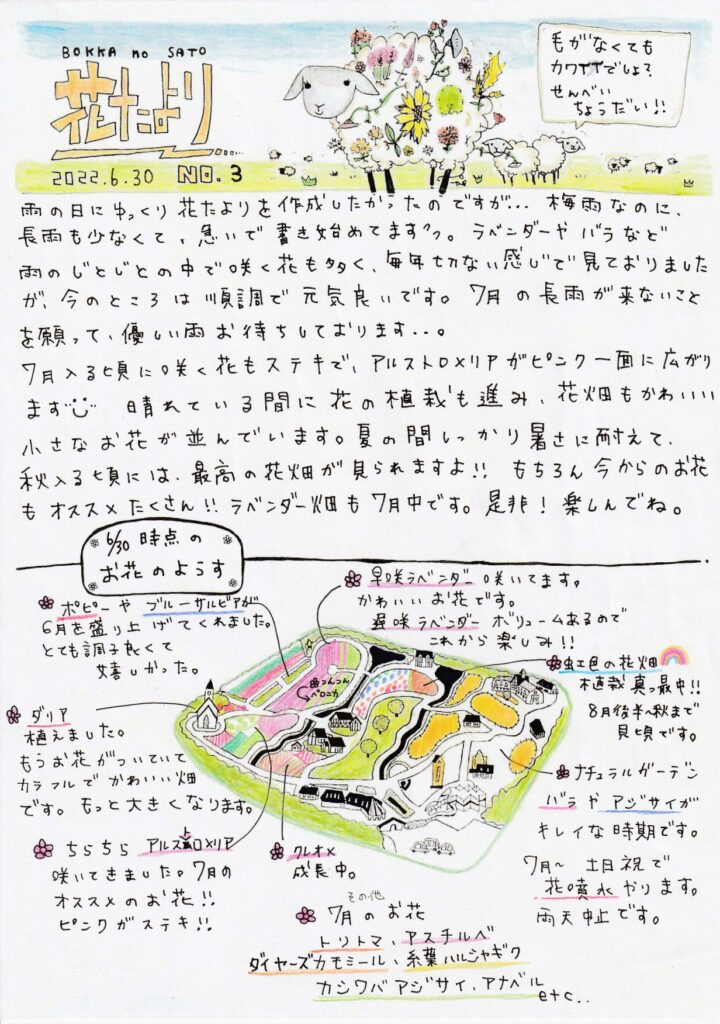 BOKKA no SATO
花たより
2022.6.30 NO.3
毛がなくても
カワイイでしょ?
せんべい
ちょうだい!!
雨の日にゆっくり花たよりを作成したかったのですが... 梅雨なのに、
長雨も少なくて、急いで書き始めてます。ラベンダーやバラなど
雨のじとじとの中で咲く花も多く、毎年切ない感じで見ておりました
が、今のところは順調で元気良いです。7月の長雨が来ないこと
を願って、優しい雨お待ちしております...。
7月入る頃に咲く花もステキで、アルストロメリアがピンク一面に広がり
ます 晴れている間に花の植栽も進み、花畑もかわいい
小さなお花が並んでいます。夏の間しっかり暑さに耐えて、
秋入る頃には、最高の花畑が見られますよ!! もちろん今からのお花
もオススメたくさん!! ラベンダー畑も7月中です。是非!楽しんでね。
6/30 時点の
お花のようす
早咲ラベンダー咲いてます。
かわいいお花です。
遅咲ラベンダーボリュームあるので
これから楽しみ!!
ポピーやブルーサルビアが
6月を盛り上げてくれました。
とても調子良くて
嬉しかった。
虹色の花畑
植栽真っ最中!!
8月後半〜秋まで
見頃です。
つんつん
ベロニカ
ダリア
植えました。
もうお花がついていて
カラフルでかわいい畑
です。もっと大きくなります。
ナチュラルガーデン
バラやアジサイが
キレイな時期です。
7月〜 土日祝で
花噴水やります。
雨天中止です。
ちらちらアルストロメリア
咲いてきました。7月の
オススメのお花!!
ピンクがステキ!!
クレオメ
成長中。
その他
7月のお花
トリトマ、アスチルベ
ダイヤーズカモミール、糸葉ハルシャギク
カシワバアジサイ、アナベル
etc..